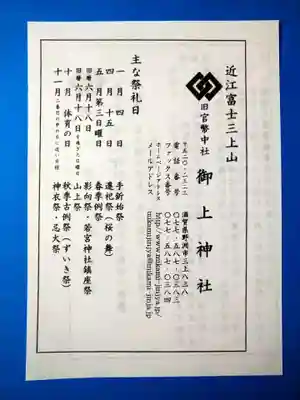 近江富士三上山
旧官幣中社
御上神社
〒五二〇-二三二三
滋賀県野洲市三上八三八
電話番号 〇七七-五八七-〇三八三
ファックス番号 〇七七-五八七-〇三八四
ホームページアドレス http://www.mikami-jinja.jp/
メールアドレス mikamijinjya@mikami-jinja.jp
主な祭礼日
一月四日 手斬始祭
四月十五日 還祀祭(桜の舞)
五月第三日曜日 春季例祭
旧暦六月十八日 影向祭・若宮神社鎮座祭
旧暦六月十八日 山上祭
十月 体育の日 秋季古例祭(ずいき祭)
十一月 神衣祭・忌火祭